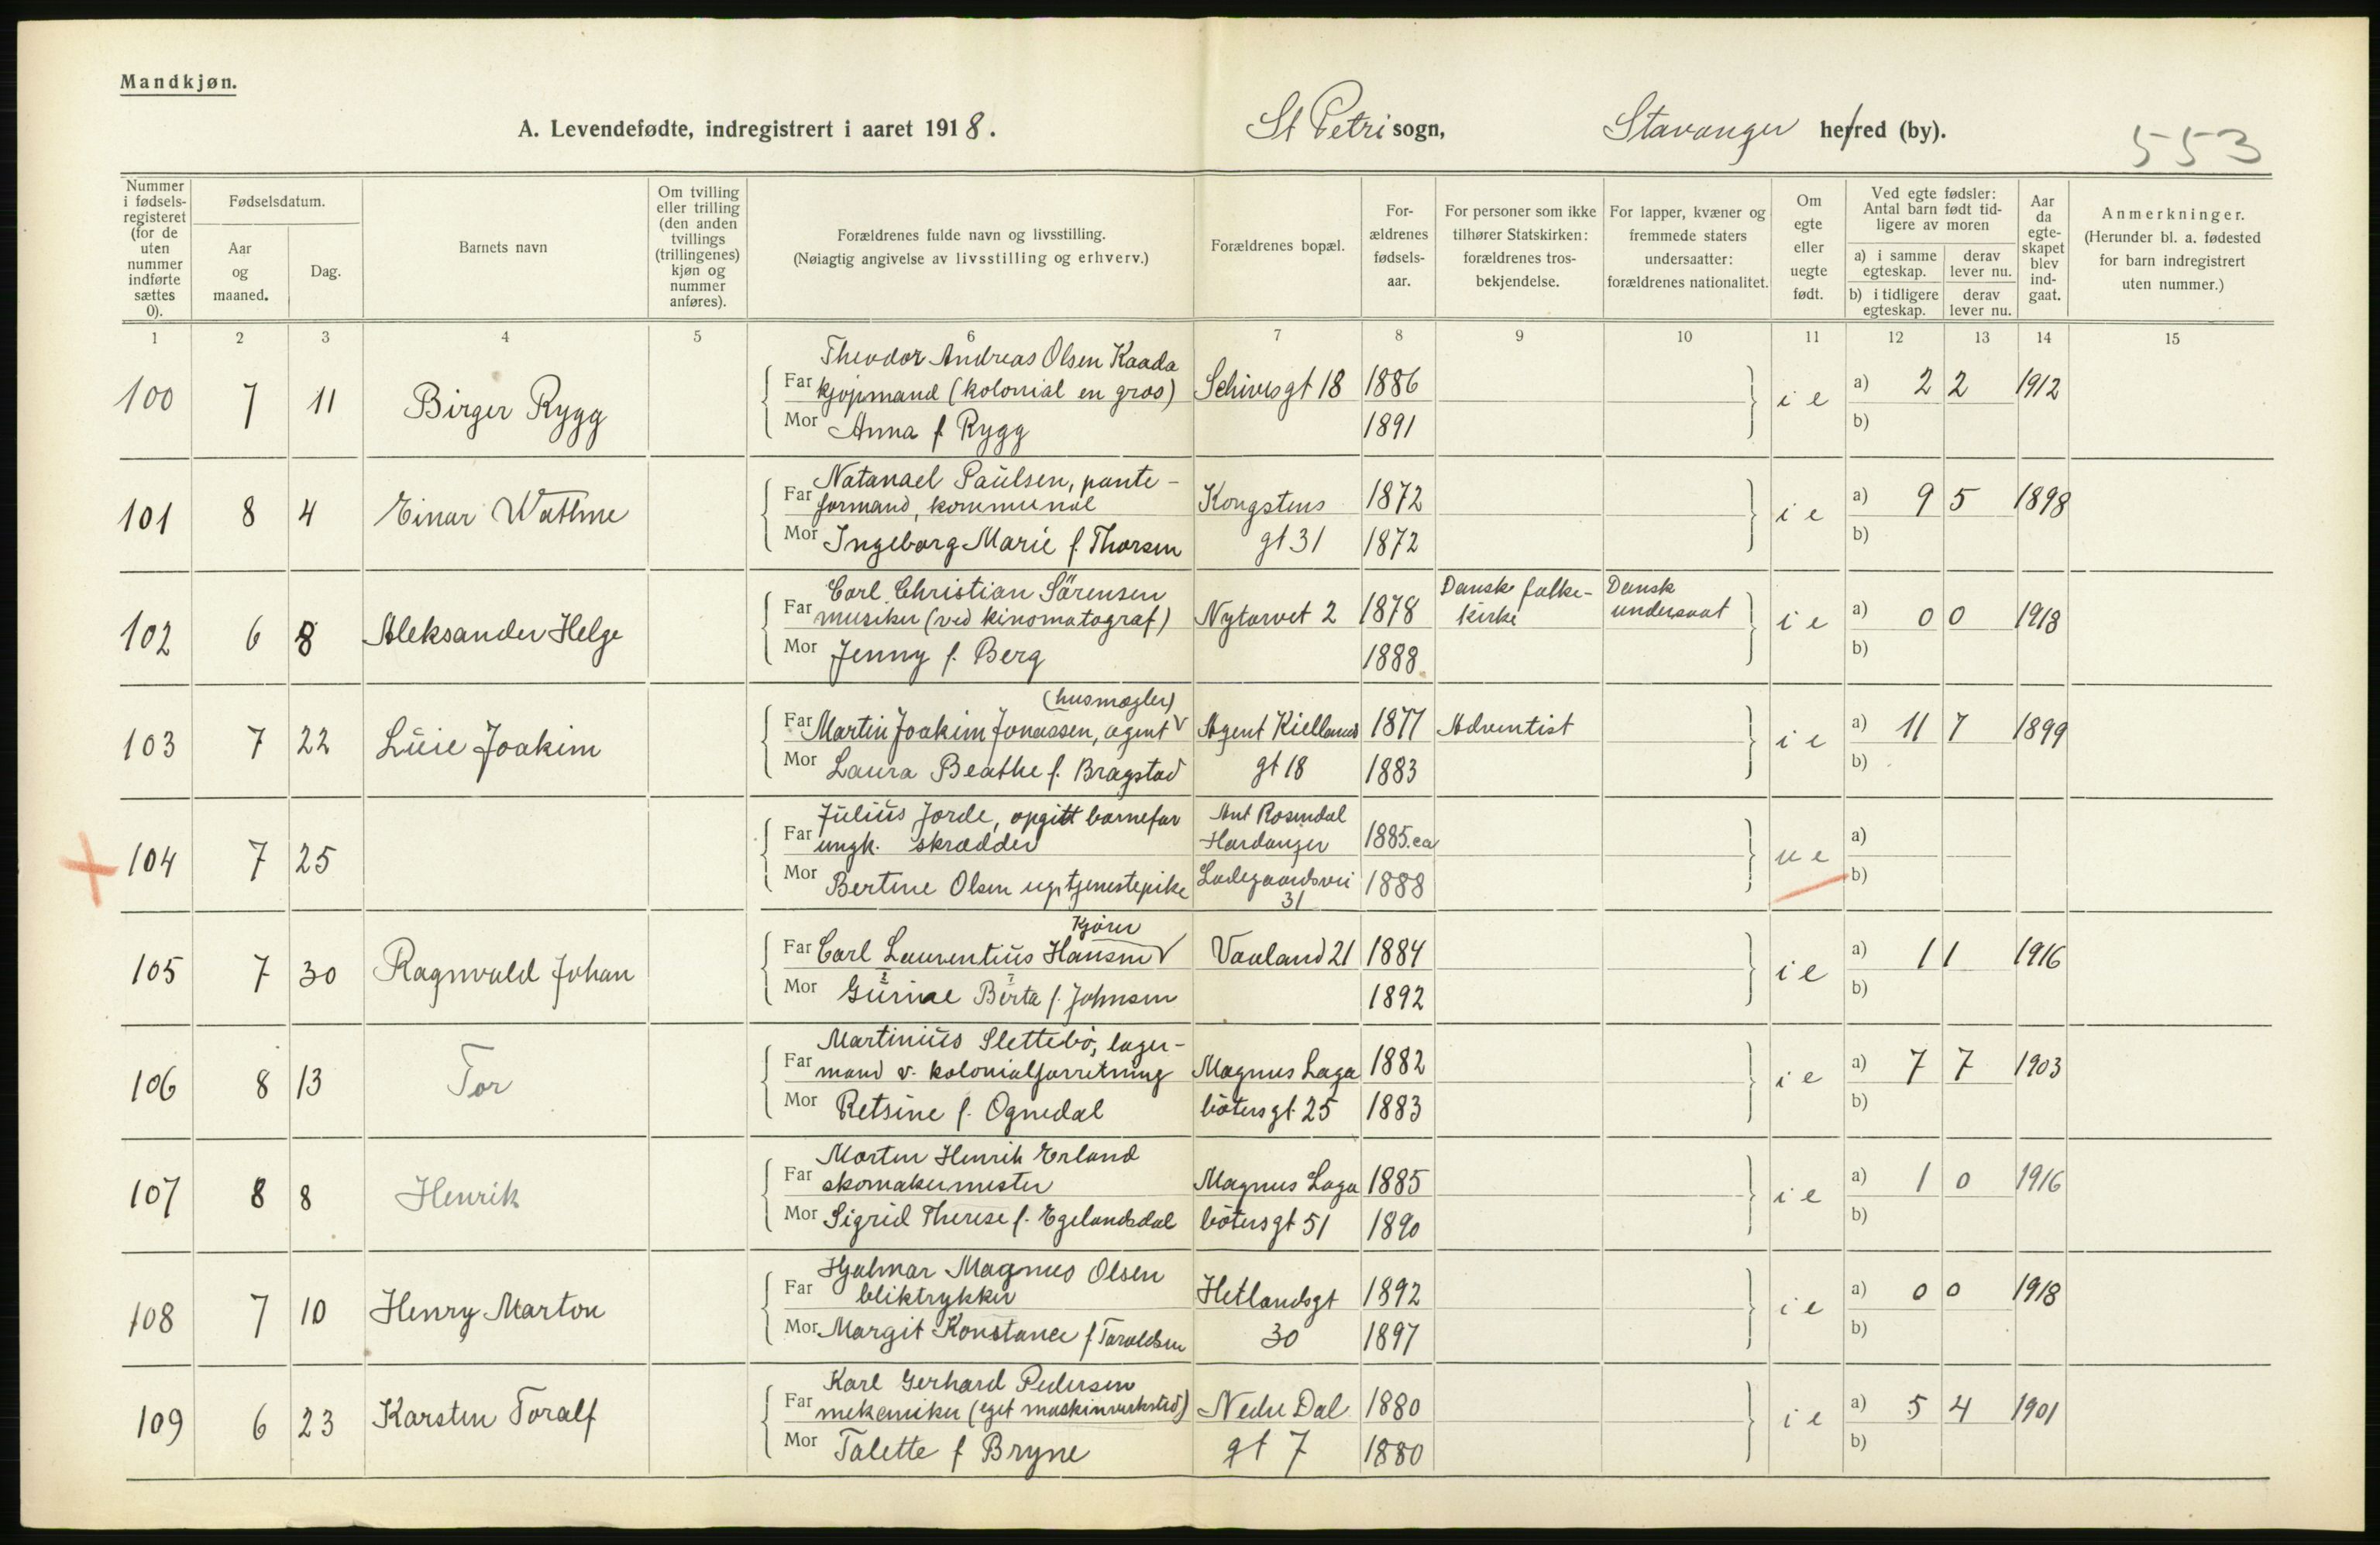 Mandkjøn.
A. Levendefødte, indregistrert i aaret 1918. St Petri sogn, Stavanger herred (by). 553
Nummer i fødsels-registeret (for de uten nummer indførte sættes 0).
Fødselsdatum.
Aar og maaned.
Dag.
Barnets navn
Om tvilling eller trilling (den anden tvillings (trillingenes) kjøn og nummer anføres).
Forældrenes fulde navn og livsstilling.
(Nøiagtig angivelse av livsstilling og erhverv.)
Forældrenes bopæl.
For-ældrenes fødsels-aar.
For personer som ikke tilhører Statskirken: forældrenes tros-bekjendelse.
For lapper, kvæner og fremmede staters undersaatter: forældrenes nationalitet.
Om egte eller uegte født.
Ved egte fødsler: Antal barn født tid-ligere av moren
a) i samme egteskap.
derav lever nu.
b) i tidligere egteskap.
derav lever nu.
Aar da egte-skapet blev ind-gaat.
Anmerkninger.
(Herunder bl. a. fødested for barn indregistrert uten nummer.)
1 2 3 4 5 6 7 8 9 10 11 12 13 14 15
Theodor Andreas Olsen Kaada
100 7 11 Birger Rygg Far kjøpmand (kolonial en gros) Schivesgt 18 1886 i e a) 2 2 1912
Mor Anna f Rygg 1891 b)
Natanael Paulsen, pante-
101 8 4 Einar Wathne Far formand, kommunal Kongstens 1872 i e a) 9 5 1898
Mor Ingeborg Marie f. Thorsen gt 31 1872 b)
Carl Christian Sörensen Danske folke- Dansk
102 6 8 Aleksander Helge Far musiker (ved kinomatograf) Nytorvet 2 1878 kirke undersaat i e a) 0 0 1918
Mor Jenny f. Berg 1888 b)
(husmægler)
103 7 22 Luie Joakim Far Martin Joakim Jonassen, agent v Agent Kiellands 1877 Adventist i e a) 11 7 1899
Mor Laura Beathe f. Bragstad gt 18 1883 b)
Julius Jorde, opgitt barnefar Ant Rosendal
104 7 25 Far ungk. skrædder Hardanger 1885.ca u e a)
Mor Bertine Olsen ug. tjenestepike Ladegaardsvei 31 1888 b)
Kjører
105 7 30 Ragnvald Johan Far Carl Laurentius Hansen v Vaaland 21 1884 i e a) 1 1 1916
Mor Gurine Berta f. Johnsen 1892 b)
Martinius Slettebö, lager-
106 8 13 Tor Far mand v. kolonialforretning Magnus Laga 1882 i e a) 7 7 1903
Mor Retsine f. Ognedal bötersgt. 25 1883 b)
Morten Henrik Erland
107 8 8 Henrik Far skomakermester Magnus Laga 1885 i e a) 1 0 1916
Mor Sigrid Therese f. Egelandsdal bötersgt 51 1890 b)
Hjalmar Magnus Olsen
108 7 10 Henry Marton Far bliktrykker Hetlandsgt 1892 i e a) 0 0 1918
Mor Margit Konstance f Taraldsen 30 1897 b)
Karl Gerhard Pedersen
109 6 23 Karsten Toralf Far mekaniker (eget maskinverksted) Nedre Dal 1880 i e a) 5 4 1901
Mor Talette f Bryne gt 7 1880 b)